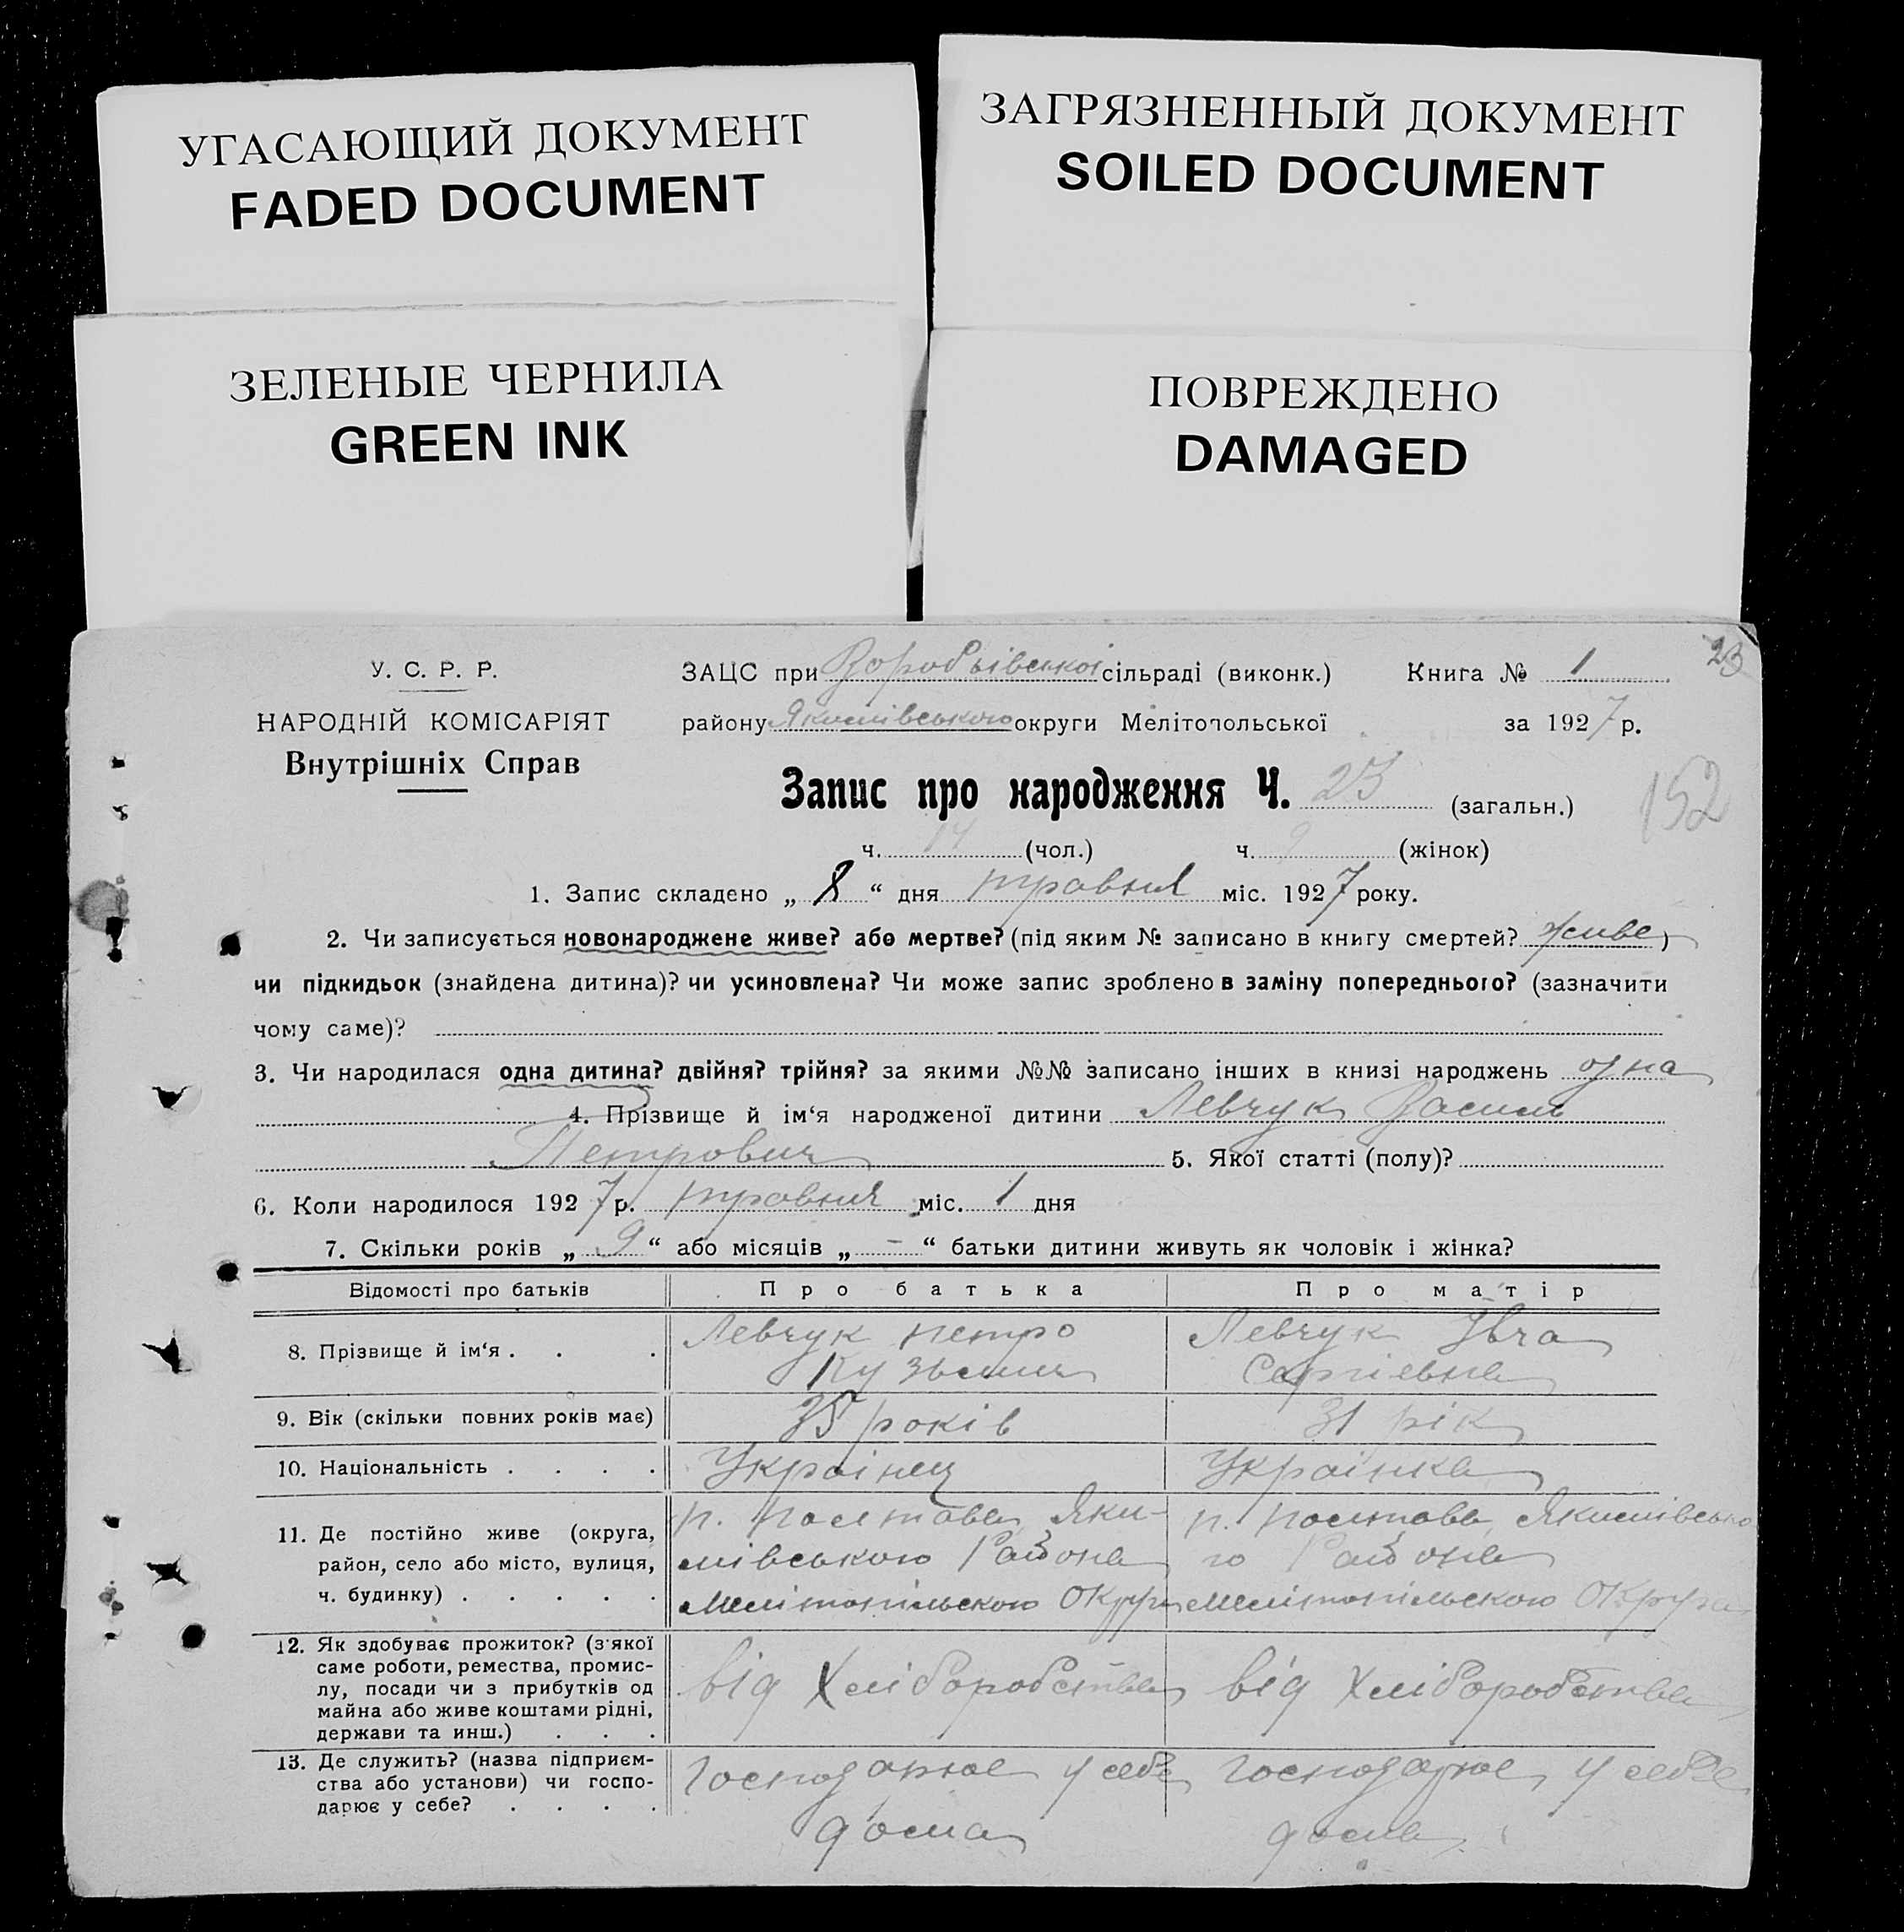 УГАСАЮЩИЙ ДОКУМЕНТ
FADED DOCUMENT
ЗАГРЯЗНЕННЫЙ ДОКУМЕНТ
SOILED DOCUMENT
ЗЕЛЕНЫЕ ЧЕРНИЛА
GREEN INK
ПОВРЕЖДЕНО
DAMAGED
23
У. С. Р. Р.
НАРОДНІЙ КОМІСАРІЯТ
Внутрішніх Справ
ЗАЦС при Воробьівської сільраді (виконк.) Книга № 1
району Якимівського округи Мелітопольської за 1927 р.
Запис про народження Ч. 23 (загальн.)
152
ч. 14 (чол.) ч. 9 (жінок)
1. Запис складено „ 8 “ дня травня міс. 1927 року.
2. Чи записується новонароджене живе? або мертве? (під яким № записано в книгу смертей? живе)
чи підкидьок (знайдена дитина)? чи усиновлена? Чи може запис зроблено в заміну попереднього? (зазначити
чому саме)?
3. Чи народилася одна дитина? двійня? трійня? за якими №№ записано інших в книзі народжень одна
4. Прізвище й ім‘я народженої дитини Левчук Василь
Петрович 5. Якої статті (полу)?
6. Коли народилося 1927 р. травня міс. 1 дня
7. Скільки років „ 9 “ або місяців „ - “ батьки дитини живуть як чоловік і жінка?
Відомості про батьків Про батька Про матір
8. Прізвище й ім‘я . . . Левчук Петро Левчук
Кузьмич Сергіевна
9. Вік (скільки повних років має) 35 років 31 рік
10. Національність . . . . Українец Українка
11. Де постійно живе (округа, п. Полтава Яки- п. Полтава Якимівсько
район, село або місто, вулиця, мівського Району го Району
ч. будинку) . . . . . Мелітопільского Округи Мелітопільского Округа
12. Як здобуває прожиток? (з'якої
саме роботи, ремества, промис-
лу, посади чи з прибутків од від Хліборобства від Хліборобства
майна або живе коштами рідні,
держави та инш.) . . .
13. Де служить? (назва підприєм- Господарює у себе Господарює у себе
ства або установи) чи госпо-
дарює у себе? . . . . дома дома